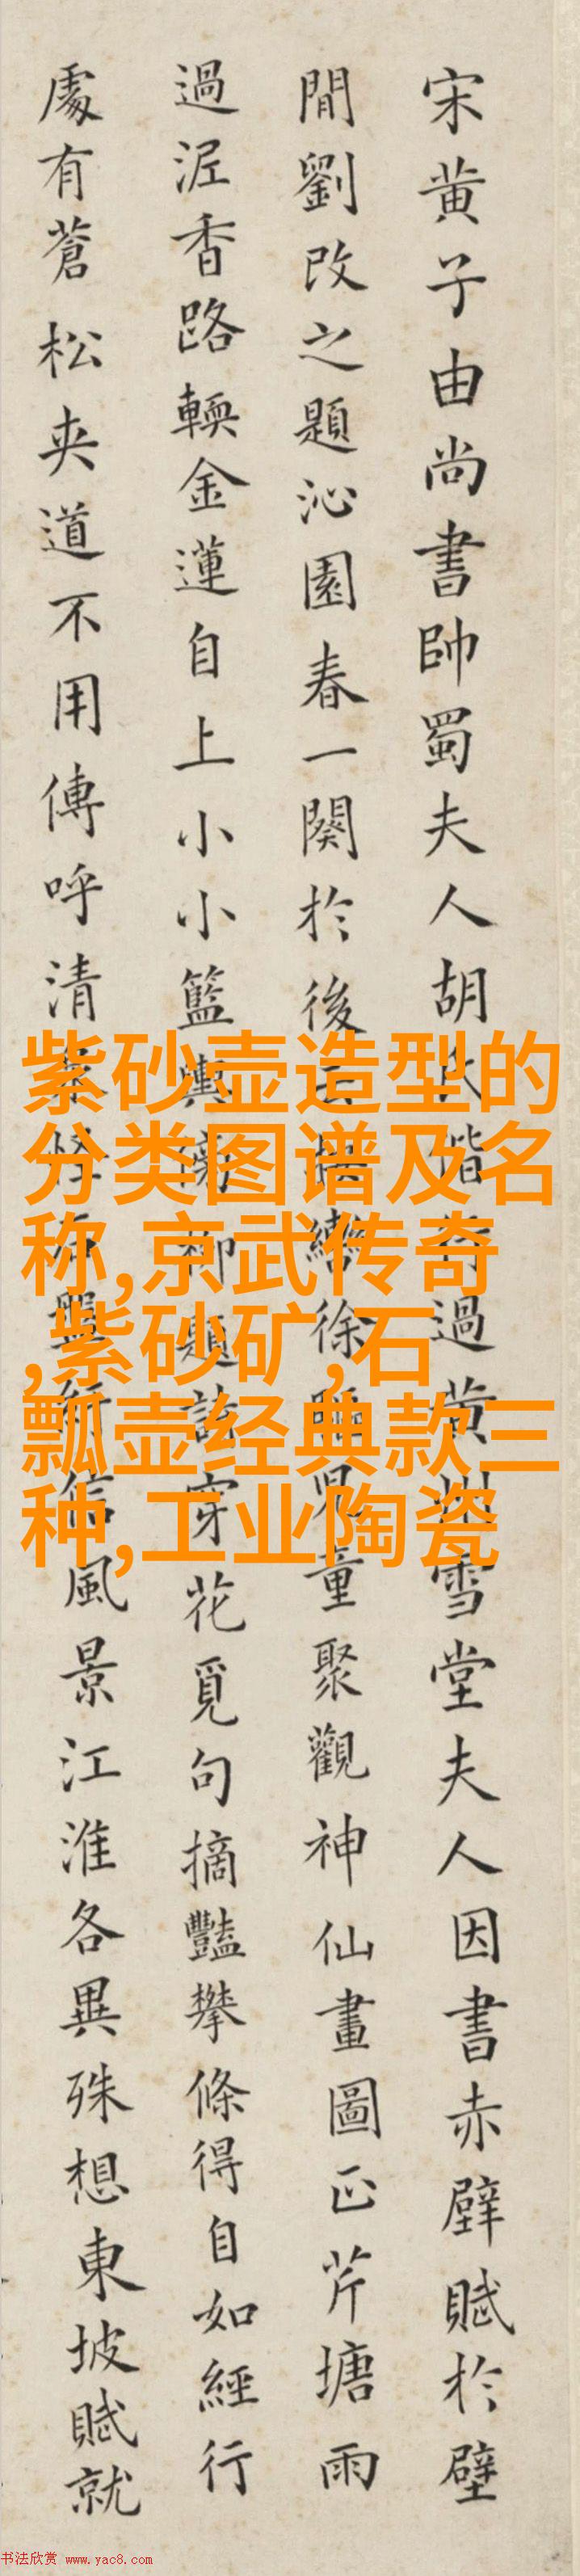 宋黄子由尚書帥蜀夫人胡氏偕行過黄州雪堂夫人因書赤壁賦於壁
間劉改之題沁園春一闋於後云按轡徐驅兒童聚觀神仙畫圖正芹塘雨
過泥香路輭金蓮自上小小籃輿傍柳題詩穿花覓句摘豔攀條得自如經行
處有蒼松夾道不用傳呼清泉怪石盤信風景江淮各異殊想東坡賦就
紫砂壶造型的
分类图谱及名
称,京武传奇
,紫砂矿,石
瓢壶经典款三
种,工业陶瓷
书法欣赏 www.yac8.com